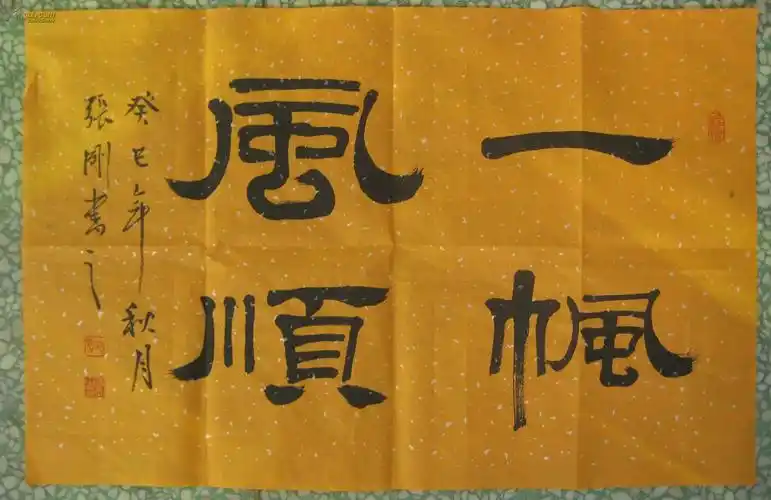 一帆
風順
癸巳年秋月
張剛書之